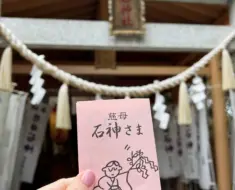 慈母
石神さま